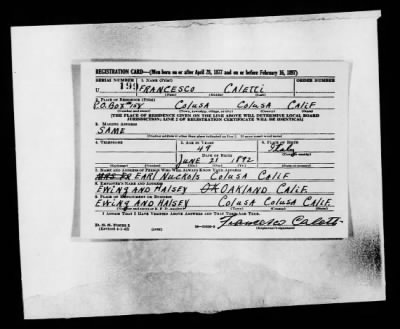 REGISTRATION CARD—(Men born on or after April 28, 1877 and on or before February 16, 1897)
SERIAL NUMBER 1. NAME (Print)
U 199 FRANCESCO CALETTI
(First) (Middle) (Last)
2. PLACE OF RESIDENCE (Print)
P.O. BOX 158 COLUSA COLUSA CALIF
(Number and street) (Town, township, village, or city) (County) (State)
[THE PLACE OF RESIDENCE GIVEN ON THE LINE ABOVE WILL DETERMINE LOCAL BOARD
JURISDICTION; LINE 2 OF REGISTRATION CERTIFICATE WILL BE IDENTICAL]
3. MAILING ADDRESS
SAME
[Mailing address if other than place indicated on line 2. If same insert word same]
4. TELEPHONE 5. AGE IN YEARS 6. PLACE OF BIRTH
49 Italy
DATE OF BIRTH
JUNE 21 1892
(Mo.) (Day) (Yr.)
7. NAME AND ADDRESS OF PERSON WHO WILL ALWAYS KNOW YOUR ADDRESS
EARL NUCKOLS COLUSA CALIF
8. EMPLOYER'S NAME AND ADDRESS
EWING AND HALSEY OAKLAND CALIF.
9. PLACE OF EMPLOYMENT OR BUSINESS
EWING AND HALSEY COLUSA COLUSA CALIF.
I AFFIRM THAT I HAVE VERIFIED ABOVE ANSWERS AND THAT THEY ARE TRUE.
D. S. S. FORM 1
(Revised 4-1-42) (over) Francesco Caletti
(Registrant's signature)